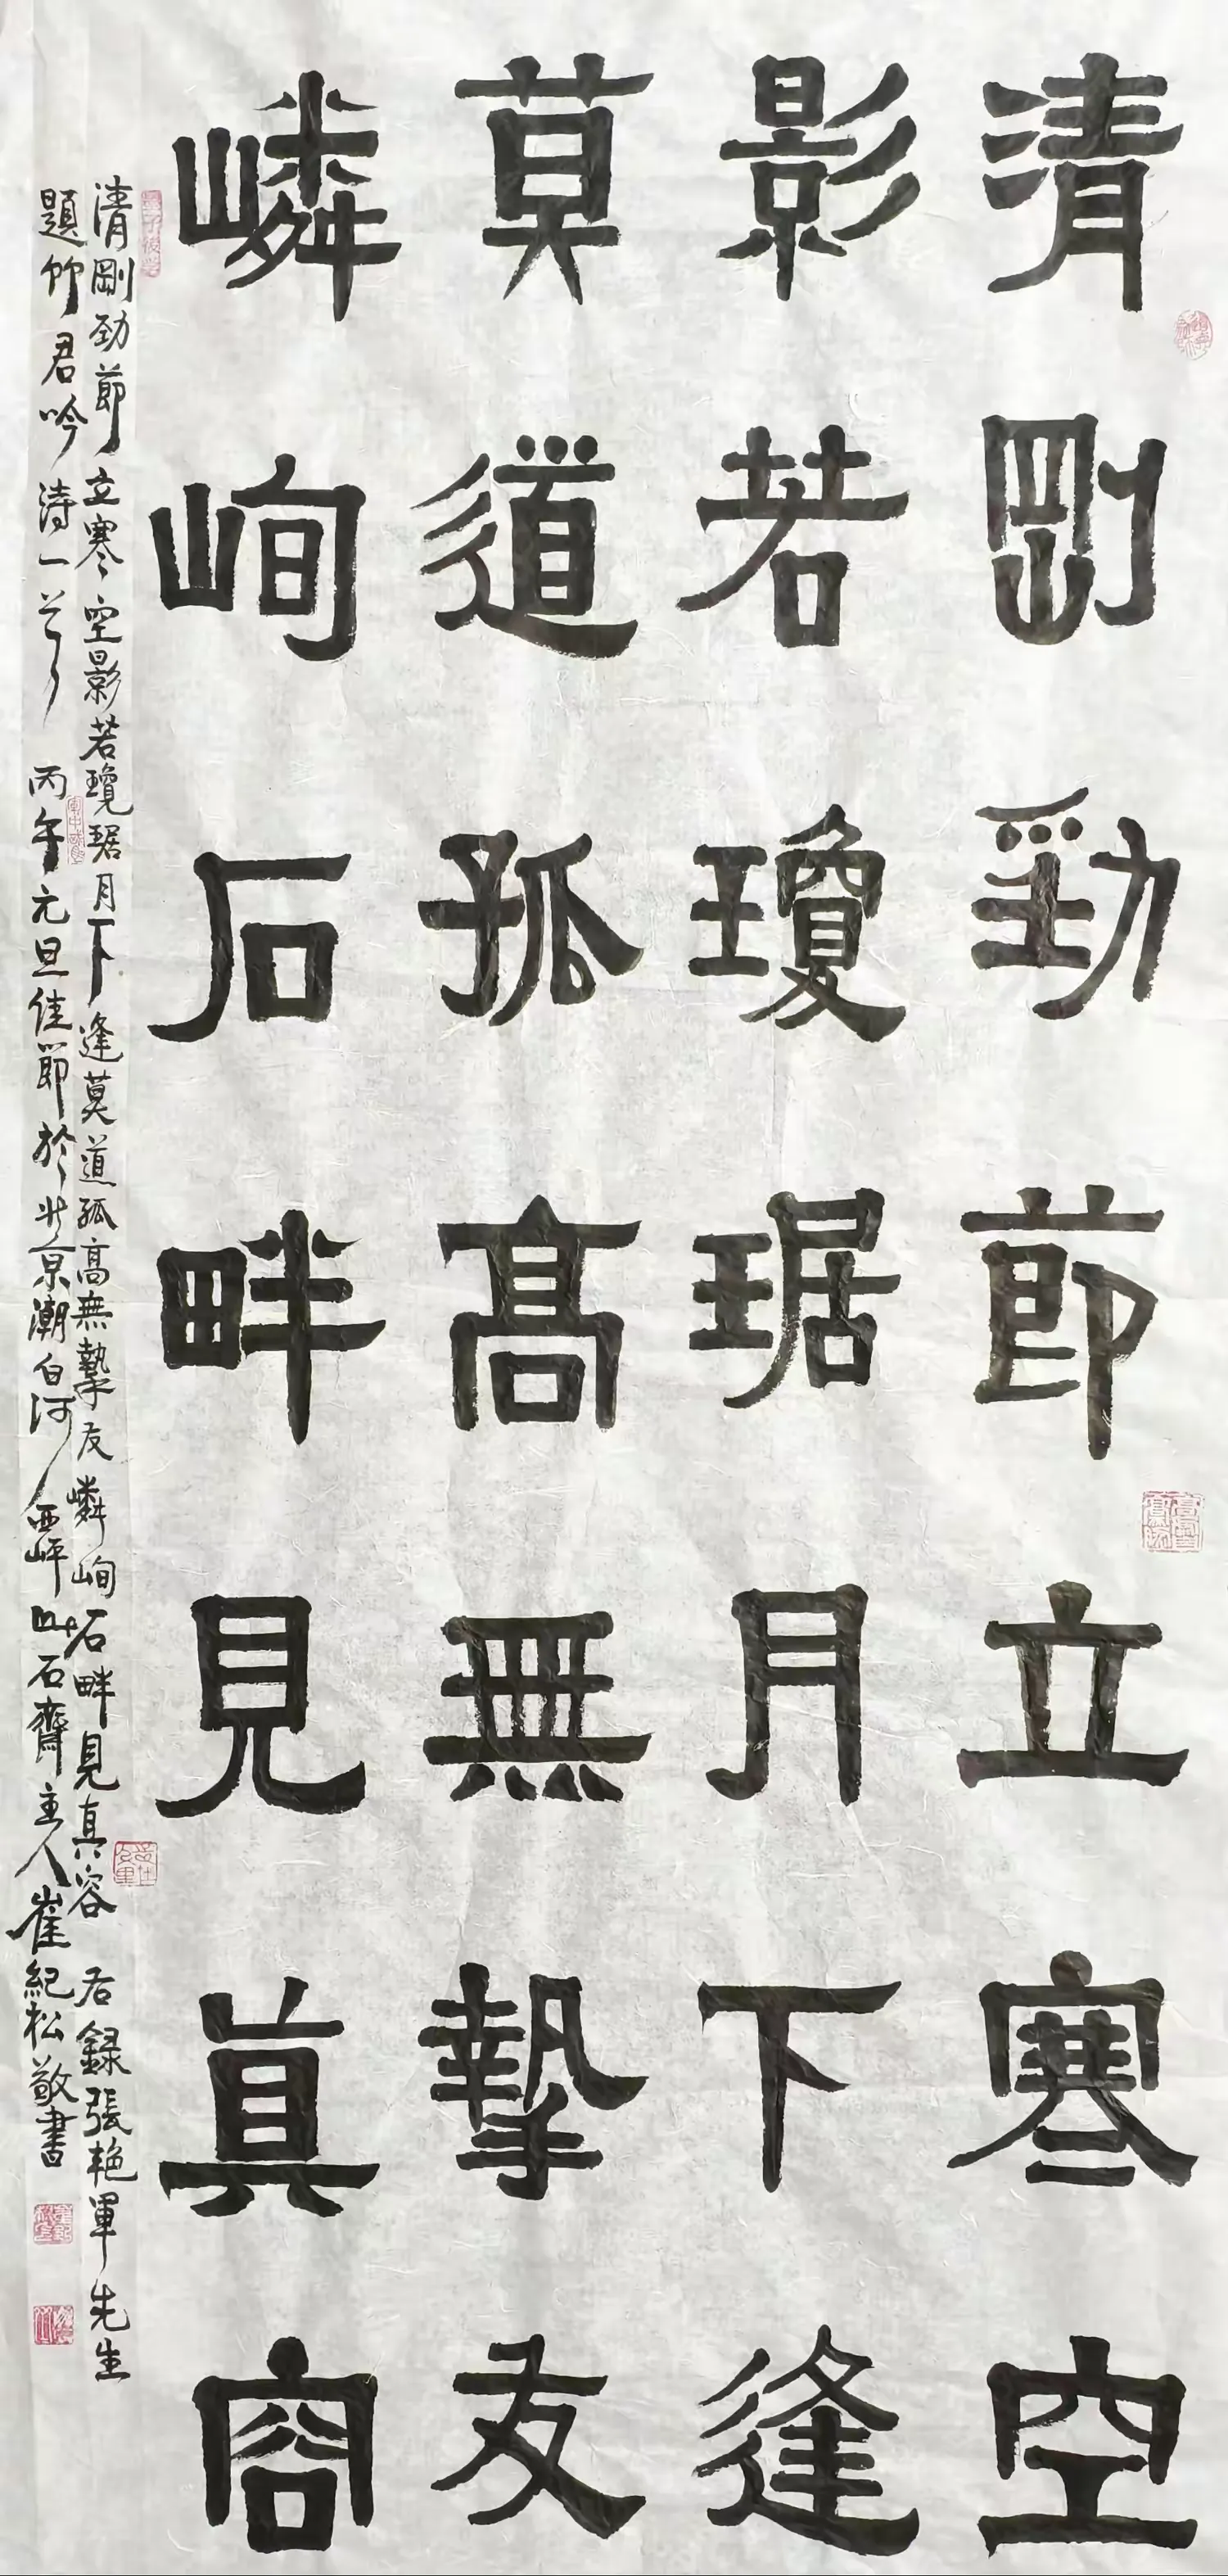 清剛勁節立寒空
影若瓊琚月下逢
莫道孤高無摯友
嶙峋石畔見真容
清剛勁節立寒空影若瓊琚月下逢莫道孤高無摯友嶙峋石畔見真容 右録張艳軍先生
題竹君吟詩一首 丙午元旦佳節於北京潮白河西岸山石齋主人崔紀松敬書